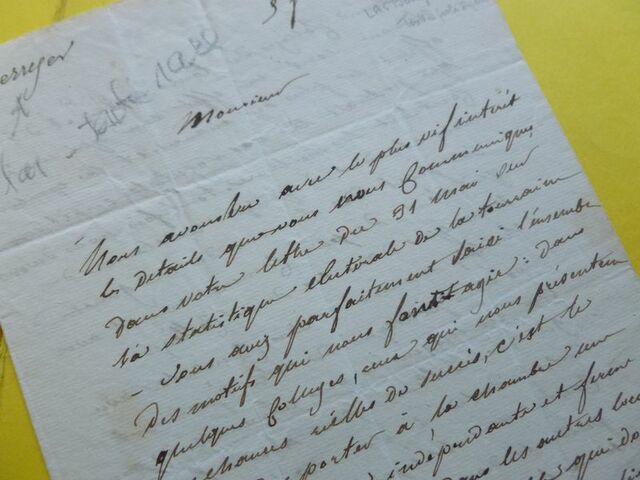 erryer
Monsieur
Nous avons lu avec le plus vif intérêt
les détails que vous nous communiquez
dans votre lettre du 31 mai sur
la statistique électorale de la touraine
- vous avez parfaitement saisi l'ensemble
des motifs qui nous font agir : dans
quelques Colleges, ceux qui nous présentent
chances réelles de succès, c'est de
porter à la chambre un
indépendante et ferme
dans les autres loca
qui do